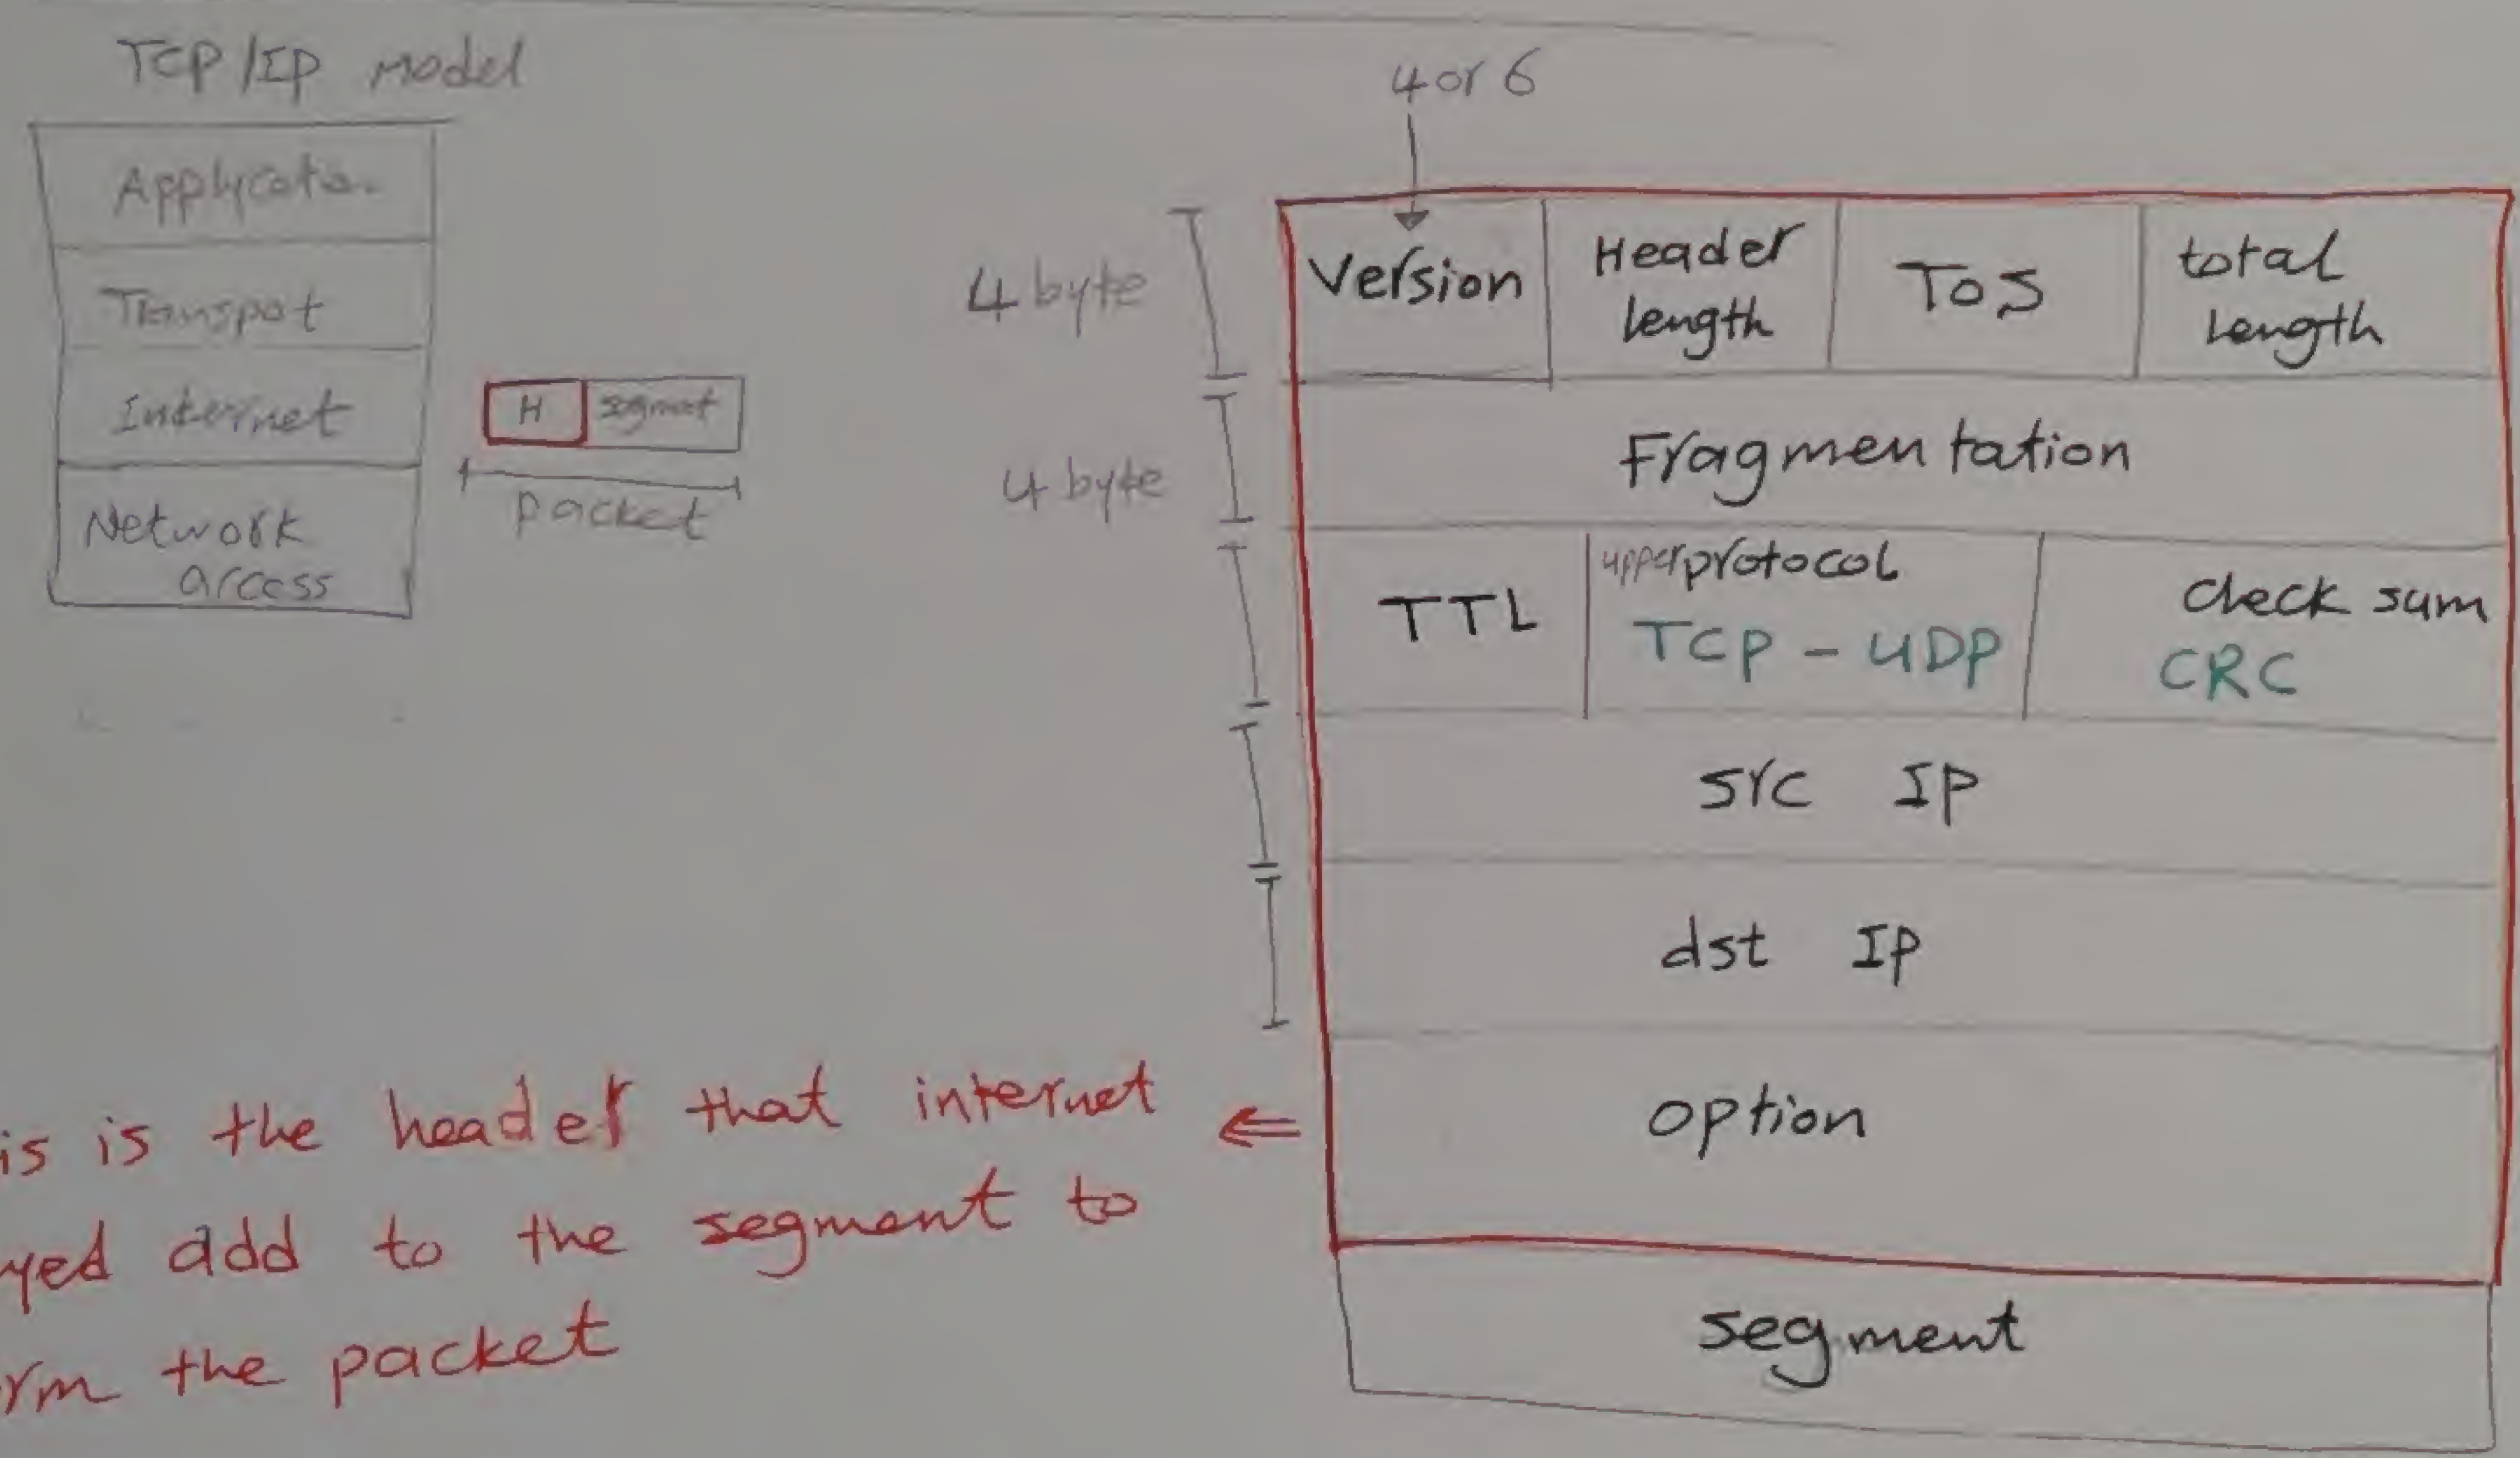 TCP/IP model
Applycato.
Transpot
Internet
Network
access
H segmet
packet
4 or 6
4 byte
Version
Header
length
ToS
total
length
4 byte
Fragmentation
TTL
upper protocol
TCP - UDP
check sum
CRC
src IP
dst IP
option
segment
is is the header that internet
yed add to the segment to
rm the packet